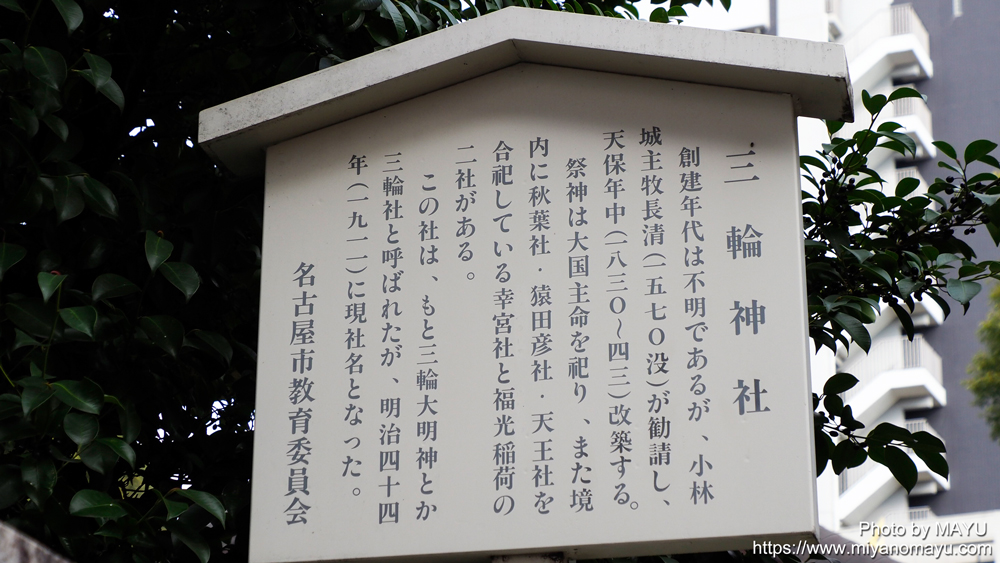 三輪神社
創建年代は不明であるが、小林
城主牧長清(一五七〇没)が勧請し、
天保年中(一八三〇~四三)改築する。
祭神は大国主命を祀り、また境
内に秋葉社・猿田彦社・天王社を
合祀している幸宮社と福光稲荷の
二社がある。
この社は、もと三輪大明神とか
三輪社と呼ばれたが、明治四十四
年(一九一一)に現社名となった。
名古屋市教育委員会
Photo by MAYU
https://www.miyanomayu.com